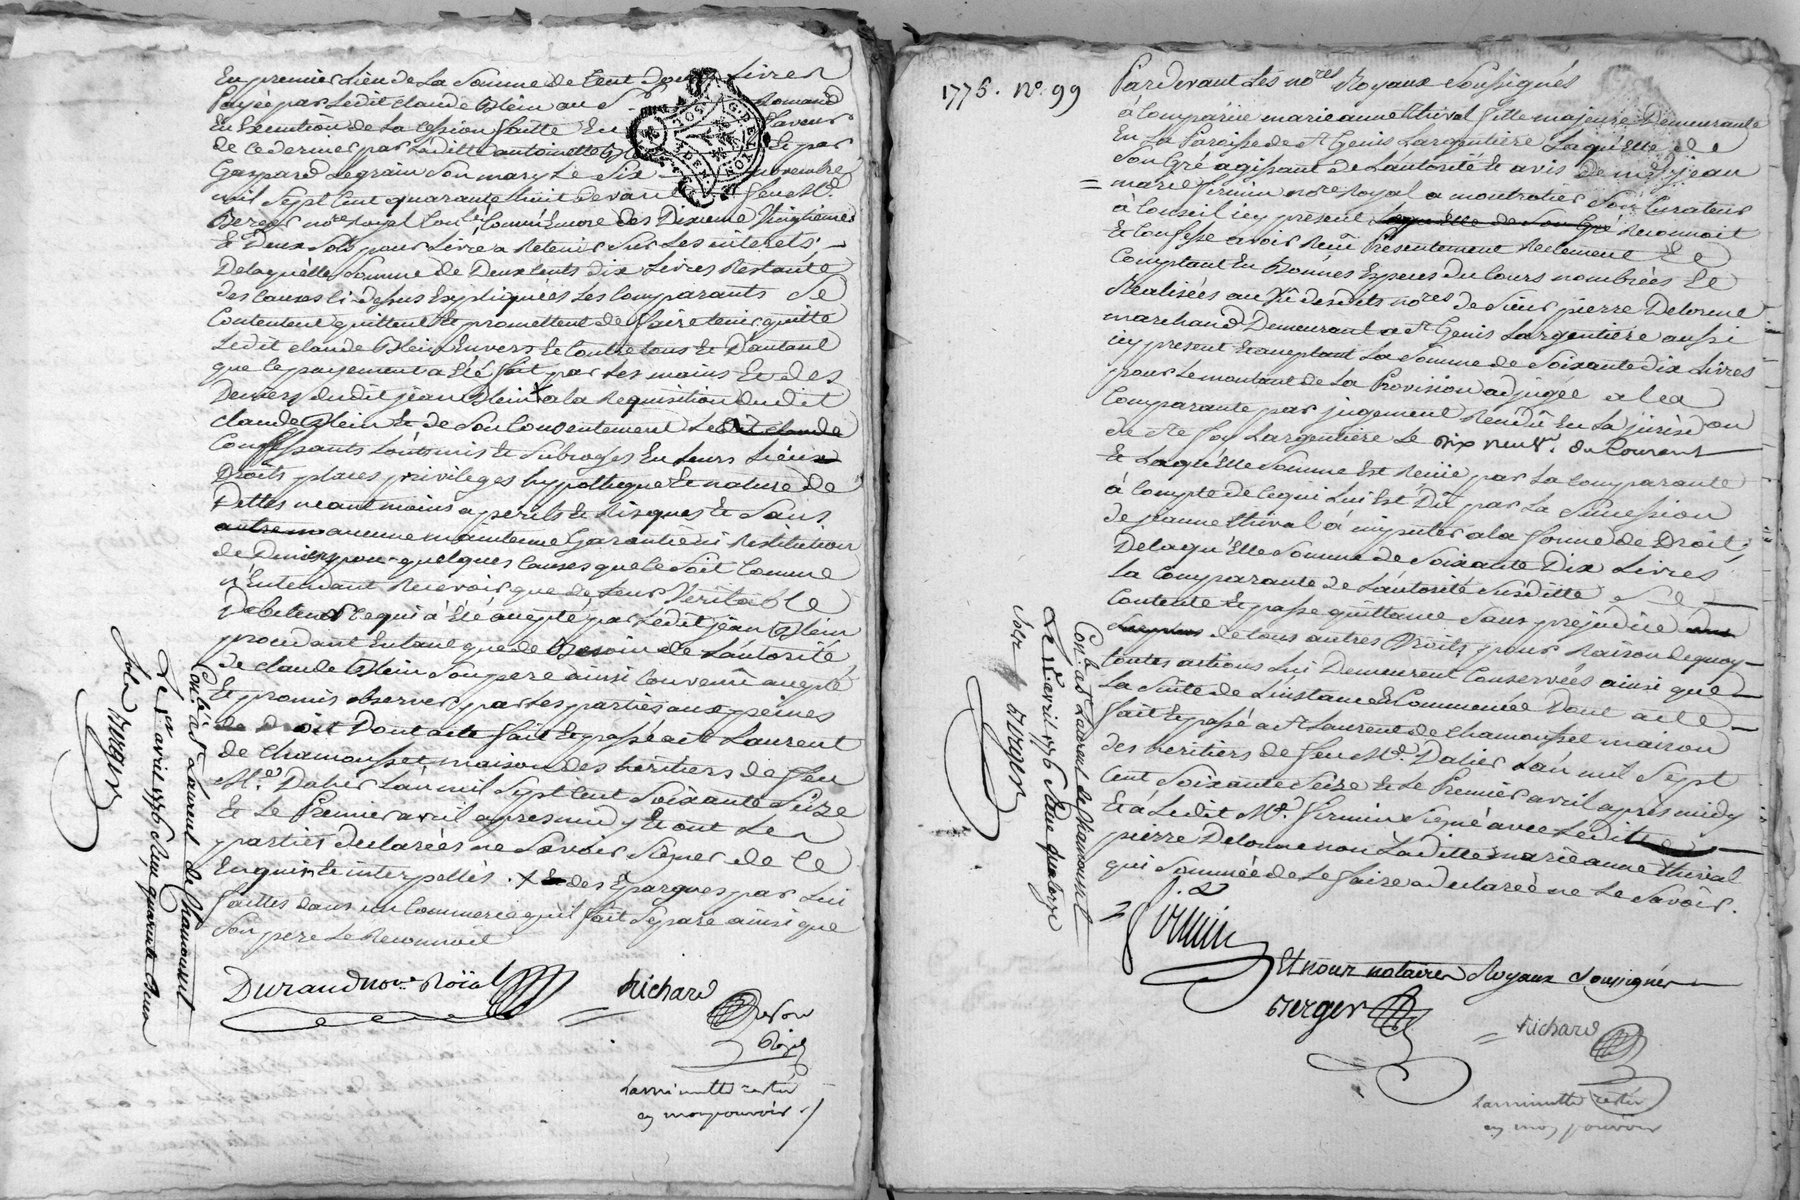 En premier Lieu de La Somme de Cent Livres
Payée par Ledit claude Blein au S. Romand
En Execution de La Cession faitte En faveur
de ce dernier par Laditte antoinette Et par
Gaspard Legrain Son mary Le Six novembre
mil Sept Cent quarante huit devant feu Me.
Berger nore. royal Comme Encore des Dixieme Vingtiemes
Et Deux Sols pour Livre a Retenir Sur Les interets
De laquelle Somme de Deux Cents dix Livres Restante
des Causes Ci-dessus Expliquées Les Comparants Se
Contentent quittent Et promettent de faire tenir quitte
Ledit claude Blein Envers Et Contre tous Et D'autant
que le payement a Eté fait par Les mains Et des
Deniers dudit jean Blein + a la Requisition dudit
Claude Blein Et de Son Consentement Ledit claude
Confessants Lont mis Et Subrogé En Leurs Lieux
Droits places privileges hypotheque Et nature de
Dettes neantmoins a perils Et Risques Et Sans
autre aucune maintenue Garantie ni Restitution
de Deniers pour quelques Causes que Ce Soit Comme
n'Entendant Recevoir que de Leur Veritable
Debiteur Ce qui a Eté accepté par Ledit jean Blein
procedant En tant que de Besoin de L'autorité
de claude Blein Son pere ainsi Convenu accepté
Et promis observer par Les parties aux peines
de droit Dont acte fait Et passé a St. Laurent
de Chamousset maison des heritiers de feu
Me. Dalier L'an mil Sept Cent Soixante Seize
Et Le Premier avril apres midy Et ont Les
parties declarées ne Savoir Signer de Ce
Enquis Et interpellés. + Et des Epargnes par Lui
faittes dans un Commerce qu'il fait Separé ainsi que
Son pere Le Reconnoit
Durand nore. Roïal
Richard
La minutte restée
en mon pouvoir
Conlé. à St. Laurent de Chamousset
Le 1er. avril 1776 Reçu quarante
Berger
1776. No. 99
Par devant Les nores. Royaux Soussignés
à Comparüe marie anne thival fille majeure Demeurante
En La Paroisse de St. Genis Largentiere Laquelle de
Son Gré agissant de L'autorité Et avis de me. jean
marie firmin nore. royal a montrotier Son Curateur
a Conseil icy présent Laquelle de Son Gré Reconnoit
Et Confesse avoir Reçû Présentement Réelement Et
Comptant En Bonnes Especes du Cours nombrées Et
Realisées au Vû desdits nores. de Sieur pierre Delorme
marchand Demeurant a St. Genis Largentiere aussi
icy present Et acceptant La Somme de Soixante dix Livres
pour Le montant de La Provision adjugée a la
Comparante par jugement Rendû En La jurisdion
de Ste foy Largentiere Le dix neuf. du Courant
Et Laquelle Somme Est Reçüe par La Comparante
à Compte de Ce qui Lui Est Dû par La Succession
de jeanne thival à imputer a la forme de Droit
De laquelle Somme de Soixante Dix Livres
La Comparante de L'autorité Susditte Se
Contente Et passe quittance Sans prejudice
de tous autres Droits pour Raison de quoy
toutes actions Lui Demeurent Conservées ainsi que
La Suitte de L'instance Commencée Dont acte
fait Et passé a St. Laurent de Chamousset maison
des heritiers de feu Me. Dalier L'an mil Sept
Cent Soixante Seize Et Le Premier avril après midy
Et a Ledit Me. firmin Signé avec Ledit
pierre Delorme non Laditte marie anne thival
qui Sommée de Le faire a declarée ne Le Savoir.
firmin
Et nous notaires Royaux Soussignés
Berger
Richard
La minutte restée
en mon pouvoir
Conlé. a St. Laurent de Chamousset
Le 1er. avril 1776 Reçu quatorze
sols Berger